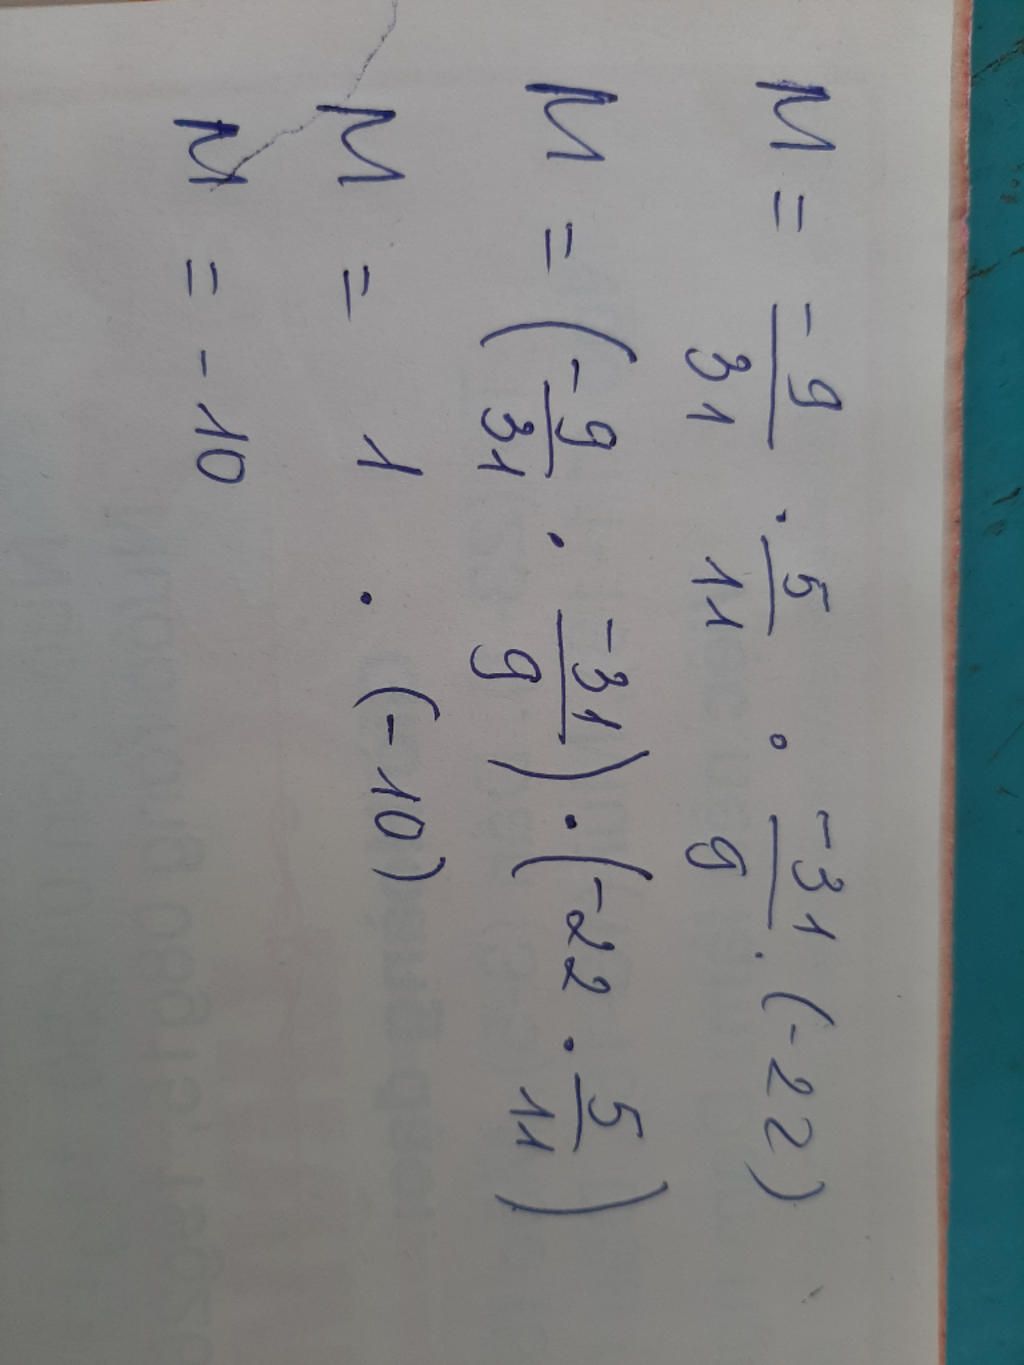 M = -9/31 · 5/11 · -31/9 · (-22)
M = (-9/31 · -31/9) · (-22 · 5/11)
M = 1 · (-10)
M = -10